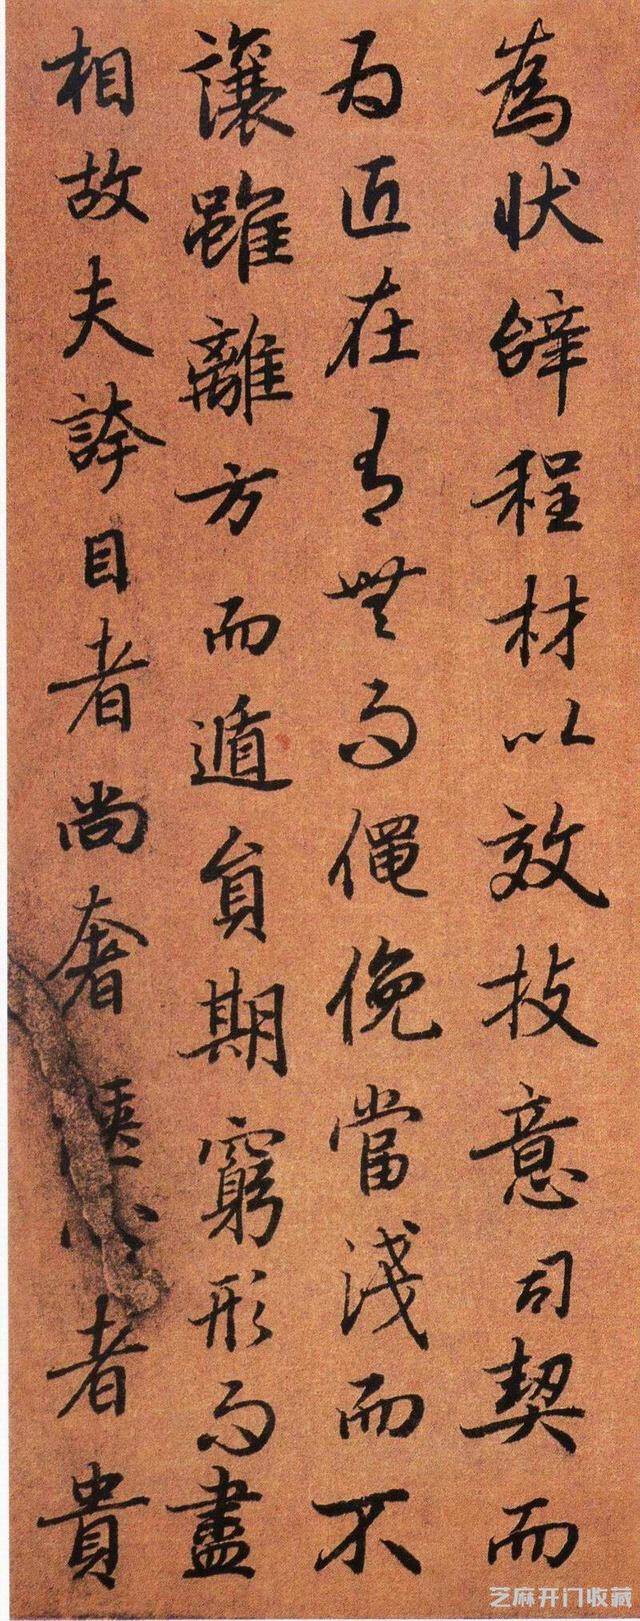 為狀辭程材以效技意司契而
為匠在有無而僶俛當淺而不
讓雖離方而遁員期窮形而盡
相故夫誇目者尚奢愜心者貴
芝麻开门收藏